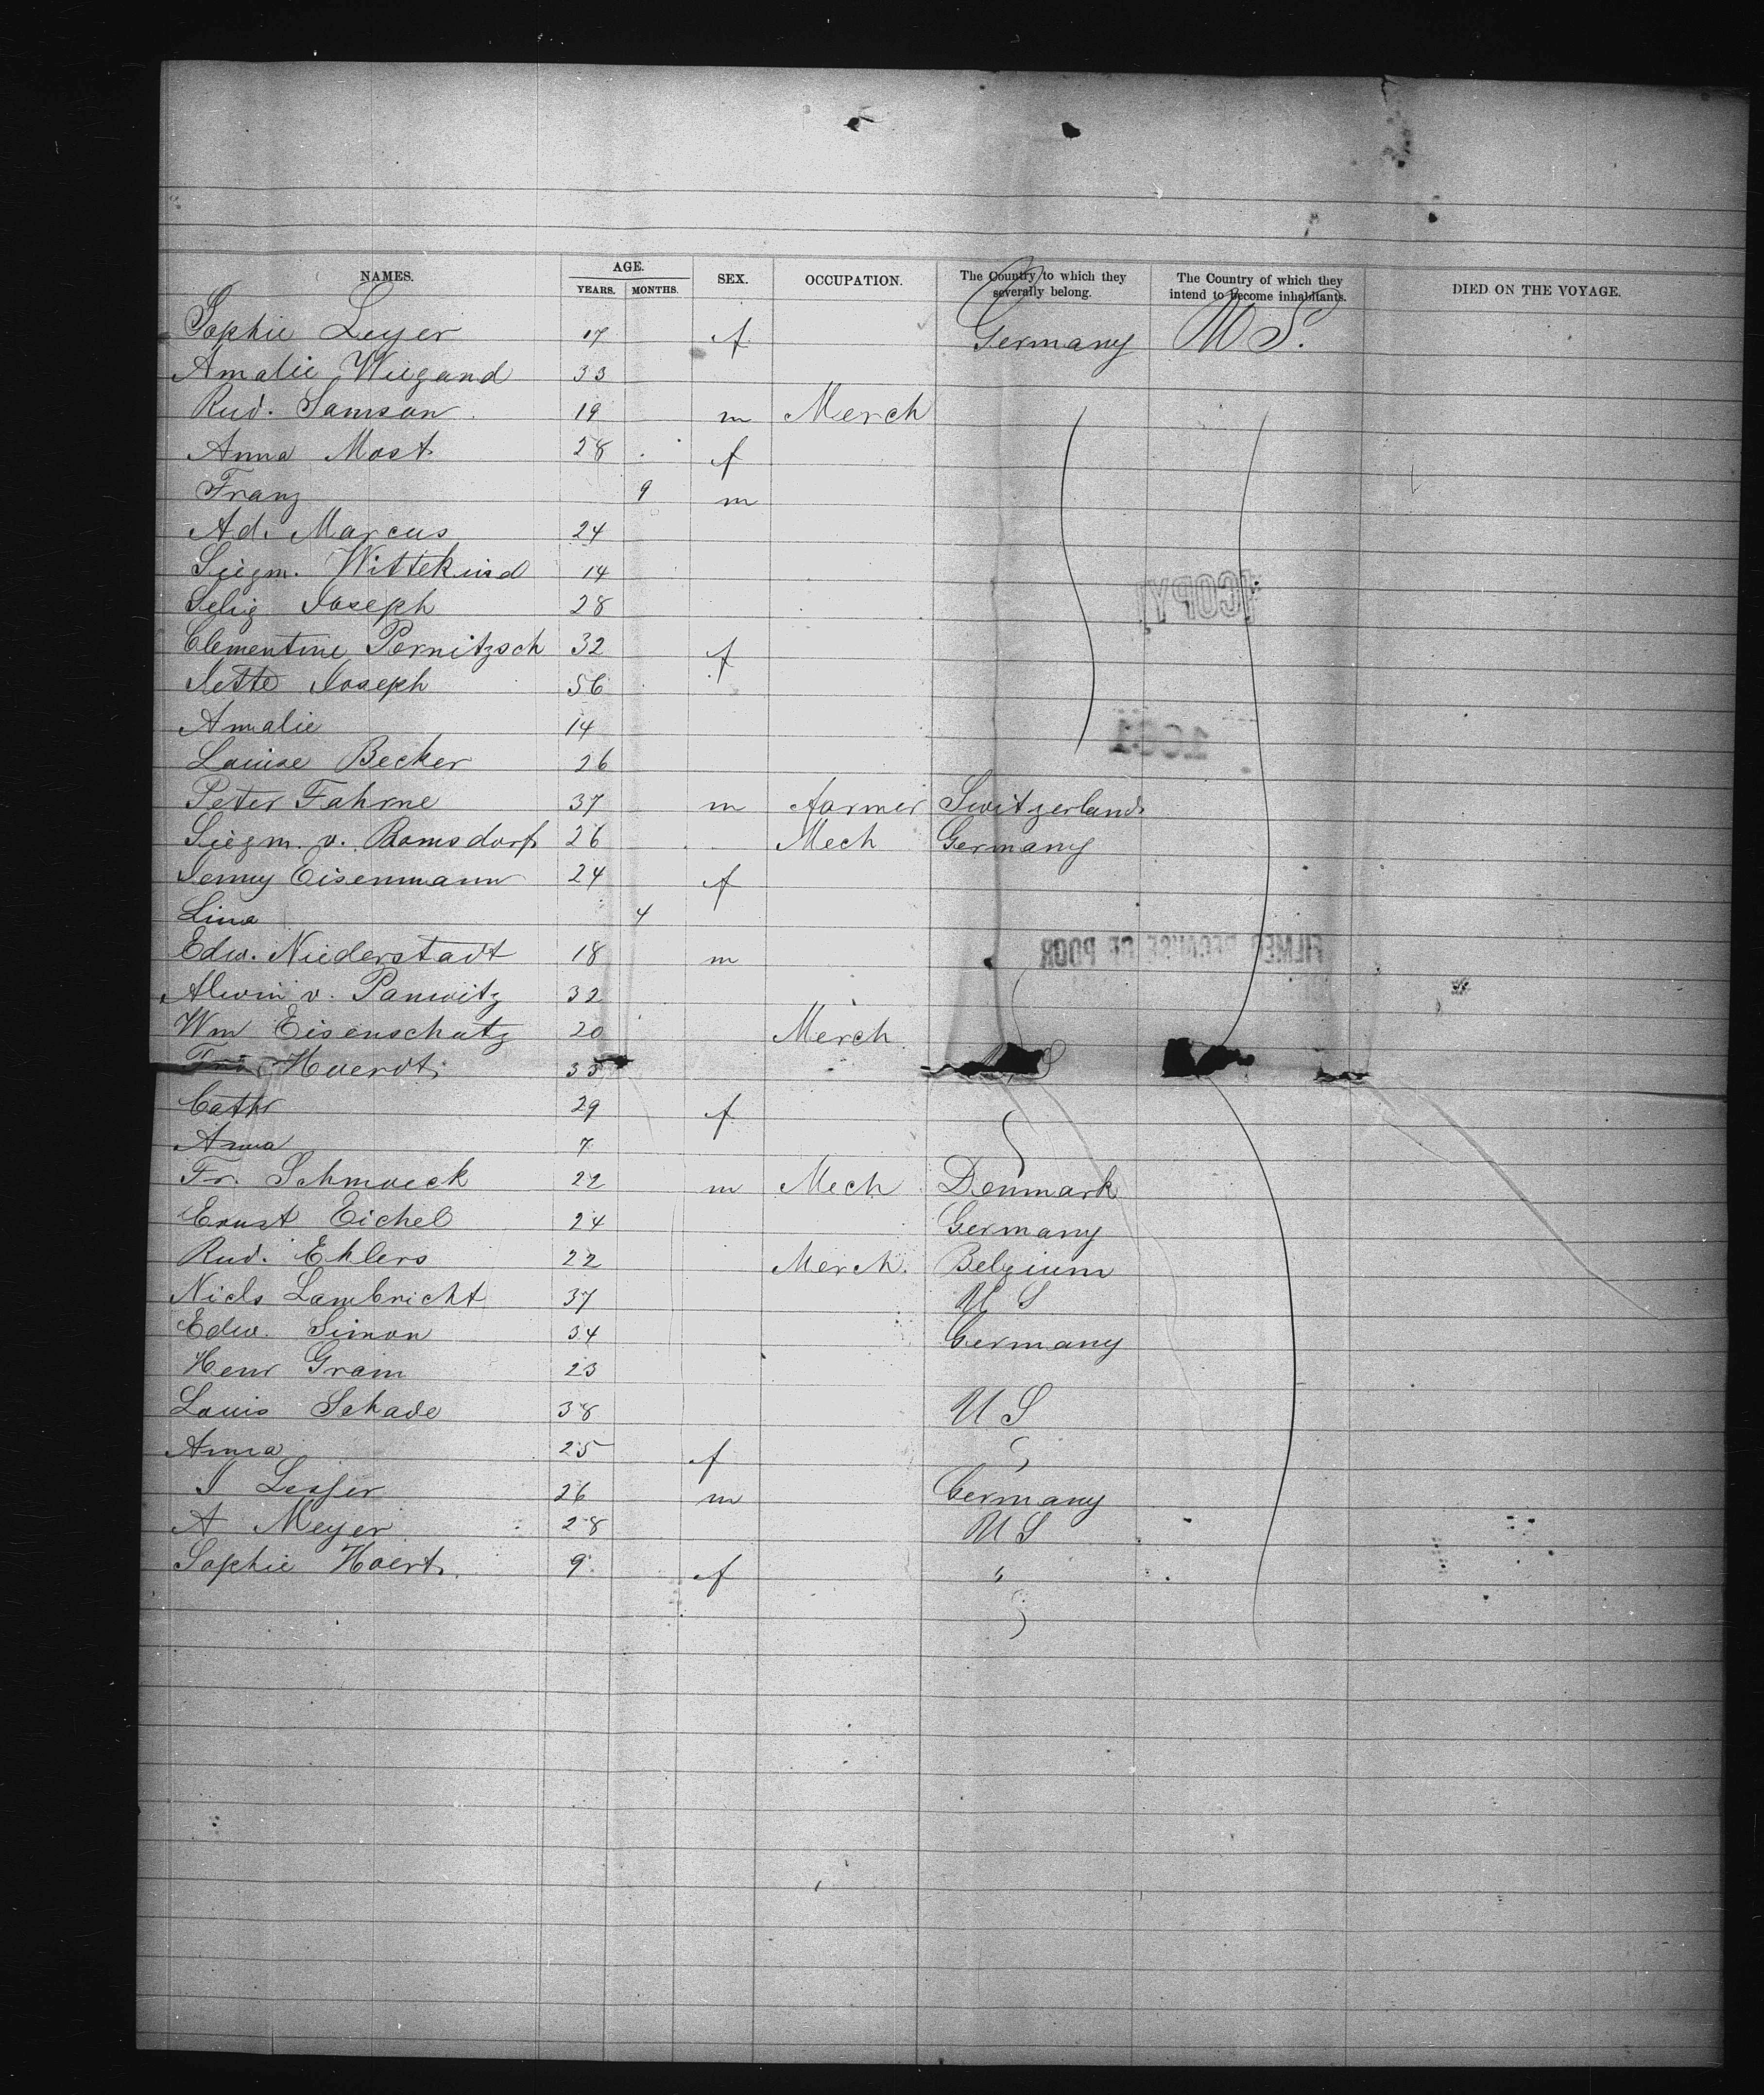 NAMES. AGE. SEX. OCCUPATION. The Country to which they severally belong. The Country of which they intend to become inhabitants. DIED ON THE VOYAGE.
YEARS. MONTHS.
Sophie Leyer 17 f Germany U S.
Amalie Wiegand 33
Rud. Samson 19 m Merch
Anna Most 28 f
Franz 9 m
Ad. Marcus 24
Siegm. Wittekind 14
Selig Joseph 28
Clementine Pernitzsch 32 f
Nette Joseph 56
Amalie 14
Louise Becker 26
Peter Fahrne 37 m farmer Switzerland
Siegm. v. Bomsdorf 26 Mech Germany
Jenny Eisenmann 24 f
Lina 4
Edw. Niederstadt 18 m
Alwin v. Panwitz 32
Wm Eisenschatz 20 Merch
Hoerdt 35 U S
Cathr 29 f
Anna 7
Fr. Schmoeck 22 m Mech Denmark
Ernst Eichel 24 Germany
Rud. Ehlers 22 Merch. Belgium
Niels Lambricht 37 U S
Edw. Simon 34 Germany
Henr Gram 23
Louis Schade 38 U S
Anna 25 f "
J Lesser 26 m Germany
A Meyer 28 U S
Sophie Hoert 9 f "